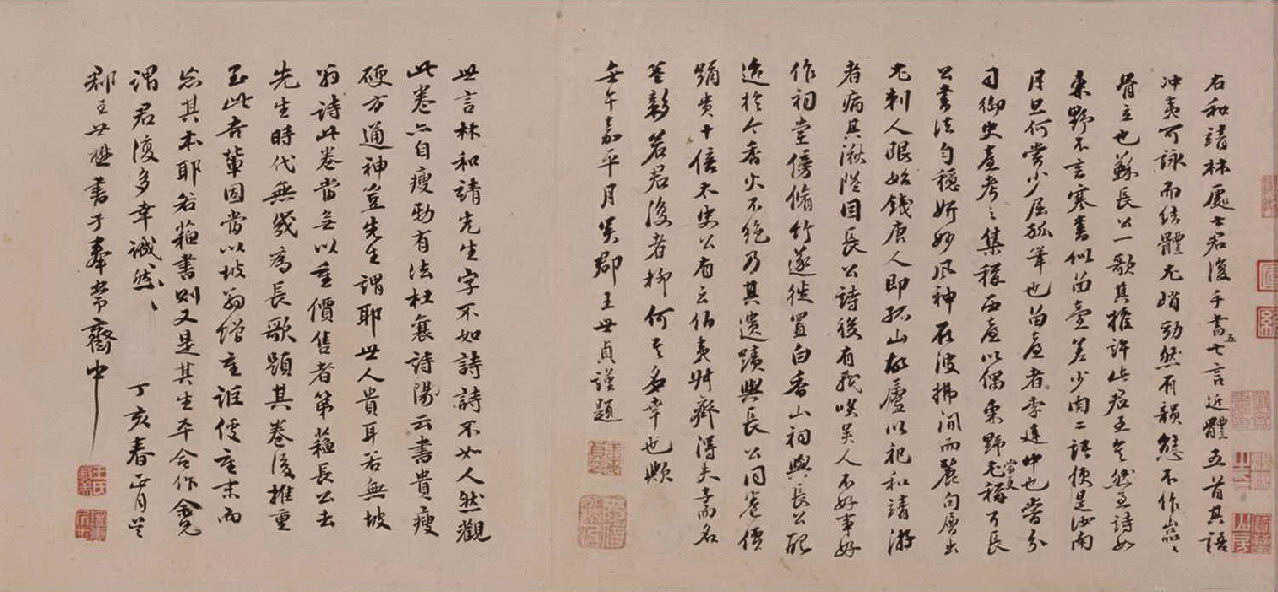 右和靖林處士君復手書五七言近體五首其語
冲夷可詠而結體尤峭勁然有韻態不作嵓嵓
骨立也蘇長公一歌其推許此君至矣然至詩如
東野不言寒書似留臺差少肉二語便是汝南
月旦何嘗少屈孤筆也留臺者李建中也嘗分
司御史臺考之集稱西臺以偶東野尤穩當及長
公書法勻穩妍妙風神在波拂間而麗句層出
尤刺人眼始錢唐人即孤山故廬以祀和靖游
者病其湫陋因長公詩後有我咲吳人不好事好
作祠堂傍脩竹遂徙置白香山祠與長公配
迨於今香火不絶乃其遺蹟與長公同卷價
踊貴十倍太史公有云伯夷叔齊得夫子而名
益彰若君復者抑何其多幸也歟
壬午嘉平月吳郡王世貞謹題
世言林和靖先生字不如詩詩不如人然觀
此卷六自瘦勁有法杜襄詩陽云書貴瘦
硬方通神豈先生謂耶世人貴耳若無坡
翁詩此卷當無以重價售者第蘇長公去
先生時代無幾為長歌題其卷後推重
至此吾輩固當以坡翁增重詎使重末而
忘其本耶若蘇書則又是其生平合作余兄
謂君復多幸誠然誠然
丁亥春正月吳
郡王世懋書于奉常齋中